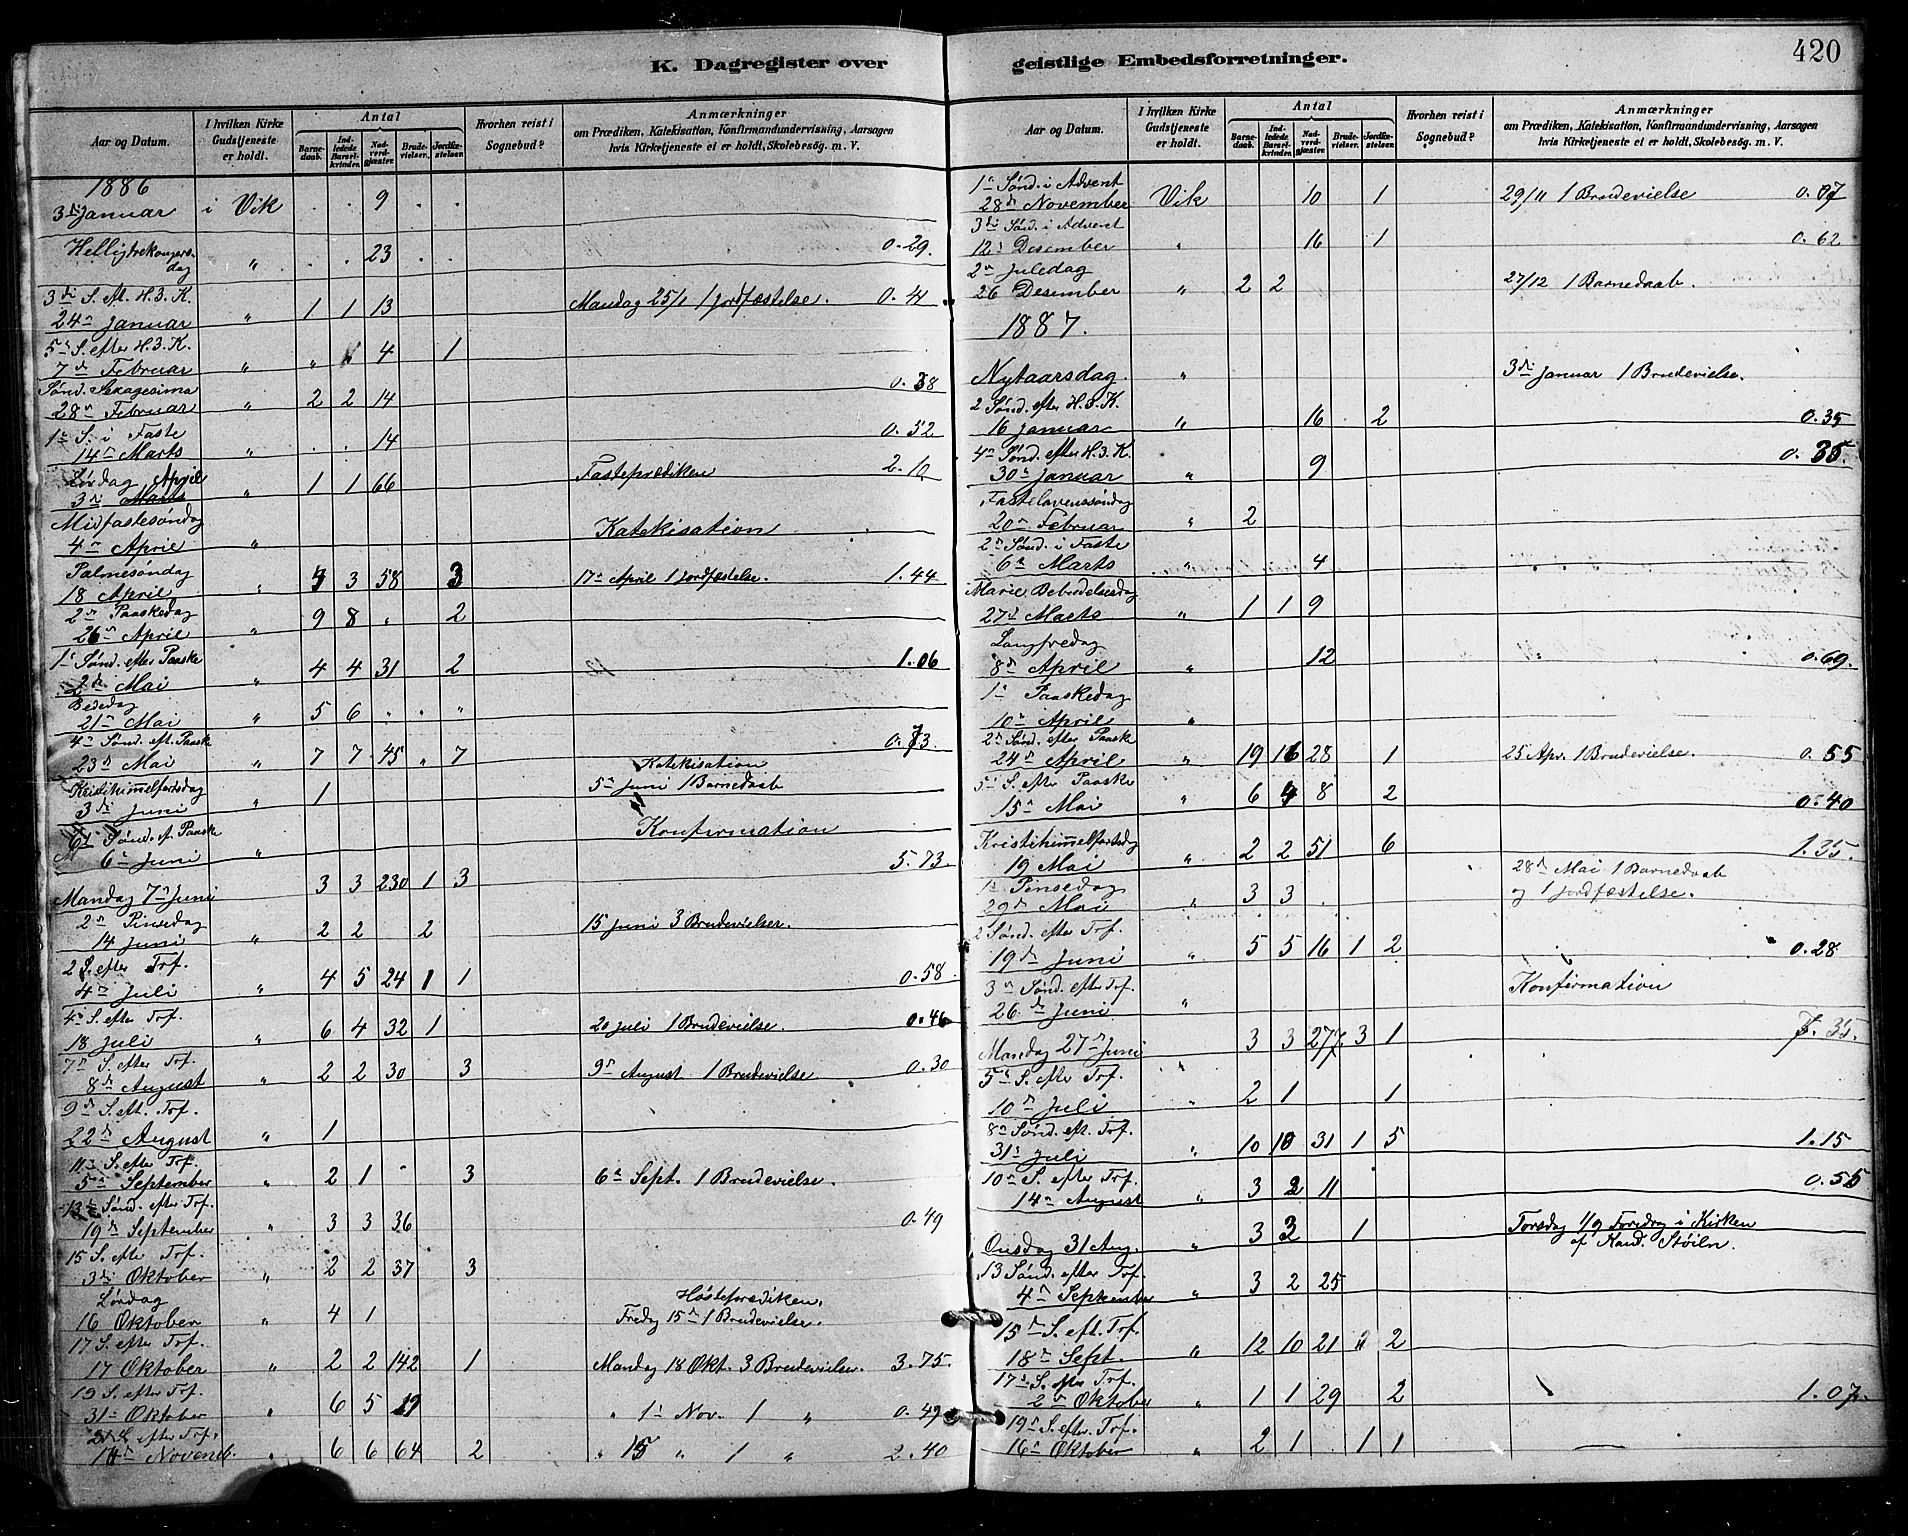 K. Dagregister over
Aar og Datum.
I hvilken Kirke Gudstjeneste er holdt.
Antal
Barnedaab.
Indledede Barselkvinder.
Nadverdgjæster.
Brudevielser.
Jordfæstelser.
Hvorhen reist i Sognebud?
Anmærkninger
om Prædiken, Katekisation, Konfirmandundervisning, Aarsagen
hvis Kirketjeneste ei er holdt, Skolebesøg. m. V.
1886
3di Januar i Vik . . 9 . .
Helligtrekongersdag " . . 23 . 0.29
3di S. Af. H.3.K.
24de Januar " 1 1 13 Mandag 25/1 1 Jordfæstelse. 0.41
5te S. efter H.3.K.
7de Februar " " 4 1
Sønd. Sexagesima 0.38
28de Februar " 2 2 14
1ste S. i Faste 0.52
14de Marts " . . 14
Lørdag April
3di Marts " 1 1 66 Fasteprædiken 2.10
Midfastesøndag
4de April " Katekisation
Palmesøndag
18 April " 3 58 3 17de April 1 Jordfæstelse. 1.44
2den Paaskedag
26de April " 9 8 " 2
1ste Sønd. efter Paaske
2den Mai " 4 4 31 2 1.06
Bededag
21de Mai " 5 6 " " "
4de Sønd. eft. Paaske 0.73
23de Mai " 7 7 45 " 7 Katekisation
Kristihimmelfartsdag
3di Juni " 1 5te Juni 1 Barnedaab
6te Sønd. ef. Paaske
6te Juni " Konfirmation
Mandag 7de Juni 3 3 230 1 3 5.73
2den Pinsedag
14 Juni " 2 2 2 15 Juni 3 Brudevielser.
2 S. efter Trf.
4de Juli " 4 5 24 1 1 0.58
4de S. efter Trf.
18 Juli " 6 4 32 1 20 Juli 1 Brudevielse. 0.46
7de S. efter Trf.
8de August " 2 2 30 3 9de August 1 Brudevielse 0.30
9de S. eft. Trf.
22de August " 1
11te S. efter Trf.
5te September " 2 1 . 3 6te Sept. 1 Brudevielse.
13de Sønd. efter Trf.
19de September " 3 3 36 0.49
15 S. efter Trf.
3di Oktober " 2 2 37 3
Lørdag Høsteprædiken.
16 Oktober " 4 1 Fredag 15de 1 Brudevielse.
17 S. efter Trf.
17 Oktober " 2 2 142 1 Mandag 18 Okt. 3 Brudevielser. 3.75
19 S. efter Trf.
31te Oktober " 6 5 19 " 1ste Nov. 1 " 0.49
21 S. efter Trf.
14de Novemb. " 6 6 64 2 " 15 " 1 " 2.40
geistlige Embedsforretninger.
420
Aar og Datum.
I hvilken Kirke Gudstjeneste er holdt.
Antal
Barnedaab.
Indledede Barselkvinder.
Nadverdgjæster.
Brudevielser.
Jordfæstelser.
Hvorhen reist i Sognebud?
Anmærkninger
om Prædiken, Katekisation, Konfirmandundervisning, Aarsagen
hvis Kirketjeneste ei er holdt, Skolebesøg. m. V.
1ste Sønd. i Advent
28de November Vik 10 1 29/11 1 Brudevielse 0.07
3die Sønd. i Advent
12te Desember " 16 1 0.62
2den Juledag
26 Desember " 2 2 27/12 1 Barnedaab.
1887.
Nytaarsdag. " 3di Januar 1 Brudevielse.
2 Sønd. efter H.3.K.
16 Januar " 16 2 0.35
4de Sønd. efter H.3.K.
30te Januar " 9 0.35.
Fastelavenssøndag
20de Februar " 2
2den Sønd. i Faste
6te Marts " 4
Marie Bebudelsesdag
27de Marts " 1 1 9
Langfredag
8de April " 12 0.69.
1ste Paaskedag
10de April "
2den Sønd. efter Paaske
24de April " 19 16 28 1 25 Apr. 1 Brudevielse. 0.55
5te S. efter Paaske
15de Mai " 6 4 8 2 0.40
Kristihimmelfartsdag
19 Mai " 2 2 51 6 1.35.
1ste Pinsedag 28de Mai 1 Barnedaab
29de Mai " 3 3 . og 1 Jordfæstelse.
2 Sønd. efter Trf.
19de Juni " 5 5 16 1 2 0.28
3die Sønd. efter Trf.
26de Juni " Konfirmation
Mandag 27de Juni " 3 3 277. 3 1 7.35.
5te S. efter Trf.
10de Juli " 2 1 1
8de Sønd. eft. Trf.
31te Juli " 10 10 31 1 5 1.15
10de S. efter Trf.
14de August " 3 2 11 0.55
Onsdag 31 Aug. " 3 1 Torsdag 1/9 Foredrag i Kirken
af Kand. Støiln.
13 Sønd. efter Trf.
4de September " 3 2 25
15de S. eft. Trf.
18de Sept. " 12 10 21 " 2
17de S. efter Trf.
2den Oktober " 1 1 29 2 1.07.
19de S. efter. Trf.
16de Oktober " 2 1 1 1